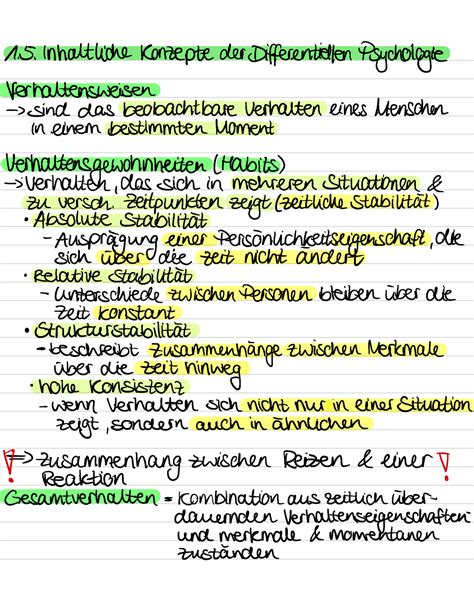 1.5. Inhaltliche Konzepte der Differentiellen Psychologie
Verhaltensweisen
→ sind das beobachtbare Verhalten eines Menschen
in einem bestimmten Moment
Verhaltensgewohnheiten (Habits)
→ Verhalten, das sich in mehreren Situationen &
zu versch. Zeitpunkten zeigt (zeitliche Stabilität)
• Absolute Stabilität
- Ausprägung einer Persönlichkeitseigenschaft, die
sich über die Zeit nicht ändert
• Relative Stabilität
- Unterschiede zwischen Personen bleiben über die
Zeit konstant
• Strukturstabilität
- beschreibt Zusammenhänge zwischen Merkmale
über die Zeit hinweg
• hohe Konsistenz
- wenn Verhalten sich nicht nur in einer Situation
zeigt, sondern auch in ähnlichen
! => Zusammenhang zwischen Reizen & einer !
Reaktion
Gesamtverhalten = Kombination aus zeitlich über-
dauernden Verhaltenseigenschaften
und merkmale & momentanen
zuständen